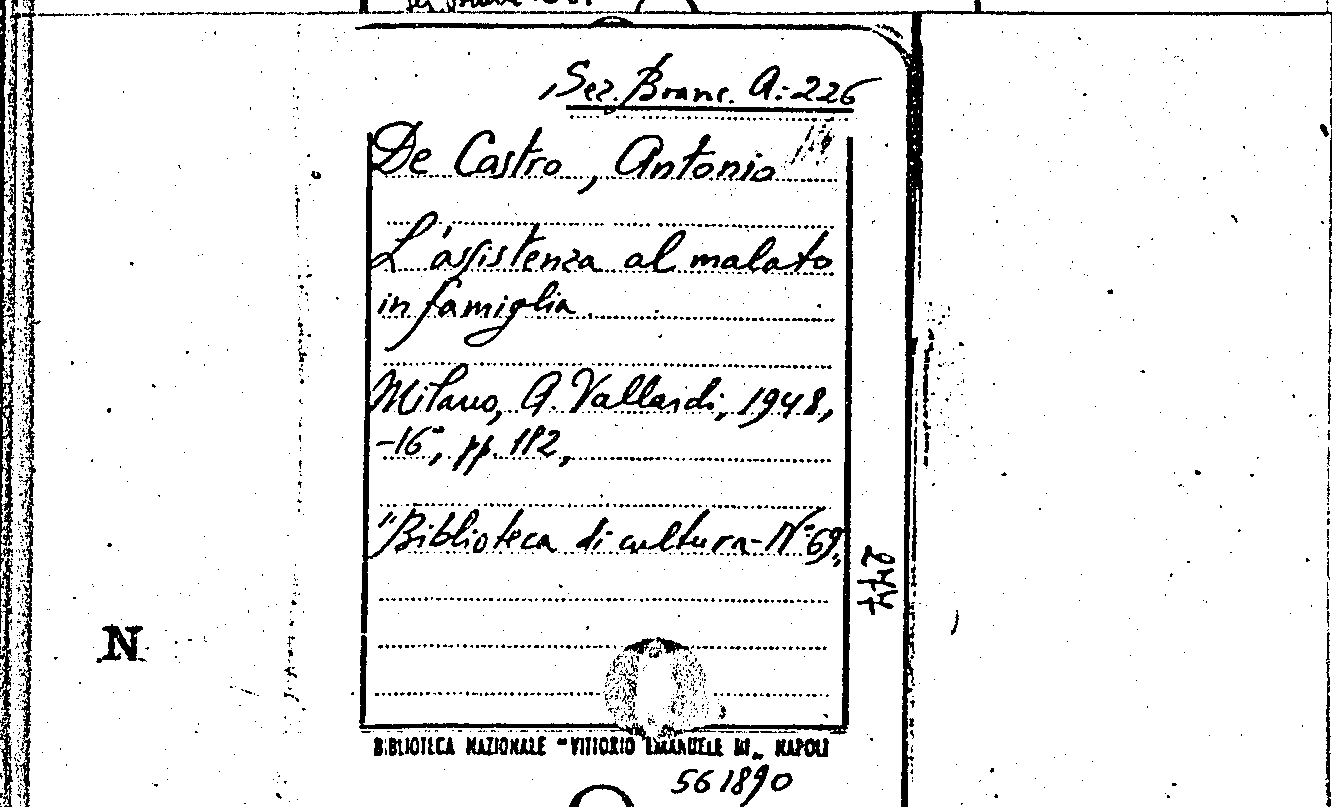 Sez. Branc. A. 226
De Castro, Antonio
L'assistenza al malato
in famiglia.
Milano, A. Vallardi, 1948,
-16°, pp. 182,
"Biblioteca di cultura - N° 69"
244
N
BIBLIOTECA NAZIONALE "VITTORIO EMANUELE III" NAPOLI
561890